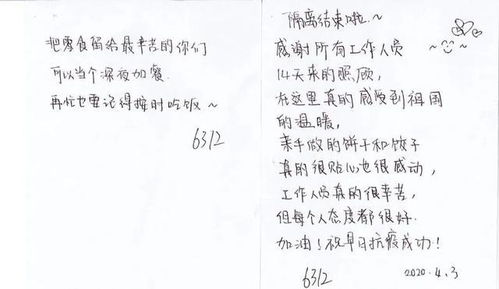 把零食留给最辛苦的你们
可以当个深夜加餐
再忙也要记得按时吃饭~
6312
隔离结束啦~
感谢所有工作人员
14天来的照顾,
在这里真的感受到祖国
的温暖,
亲手做的饼干和饺子
真的很贴心也很感动,
工作人员真的很辛苦,
但每个人态度都很好.
加油!祝早日抗疫成功!
6312
2020.4.3